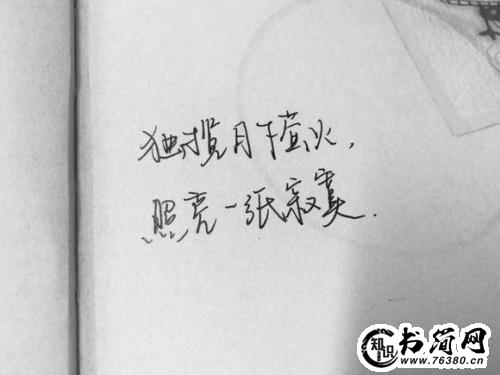 独揽月下萤火，
照亮一张寂寞.
知识
书简网
www.76380.cn